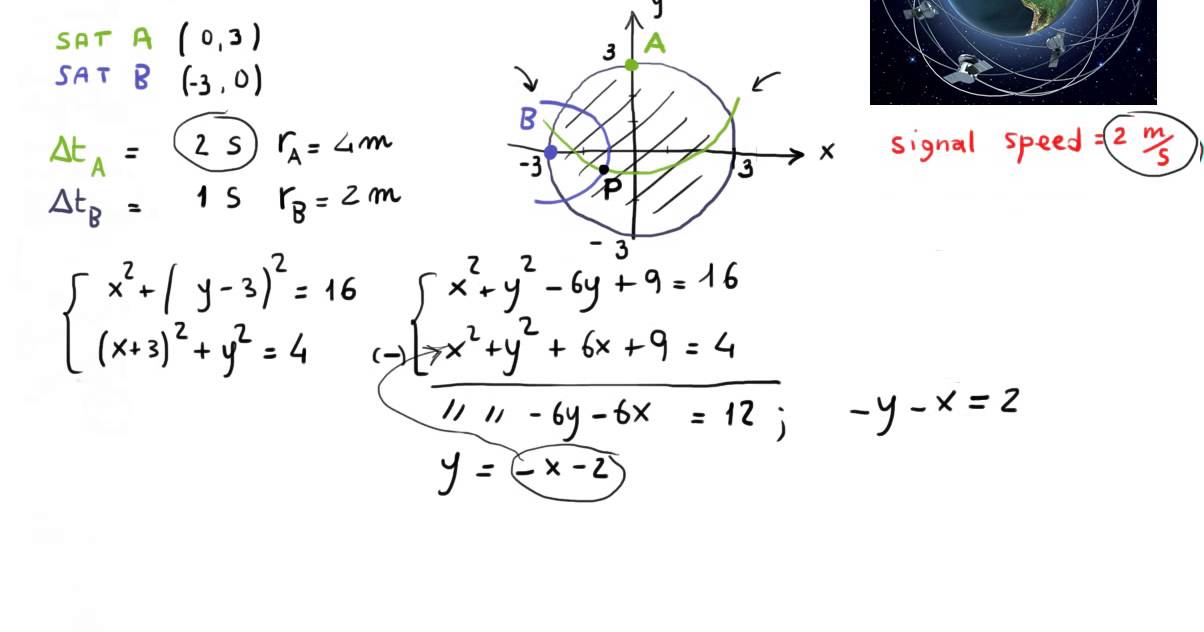 SAT A (0,3)
SAT B (-3, 0)
Δt_A = 2 S r_A = 4 m
Δt_B = 1 S r_B = 2 m
y
3 A
B
-3
P
3
x
-3
signal speed = 2 m/s
x² + (y - 3)² = 16
(x+3)² + y² = 4
x² + y² - 6y + 9 = 16
(-) x² + y² + 6x + 9 = 4
〃 〃 - 6y - 6x = 12 ; -y - x = 2
y = -x - 2